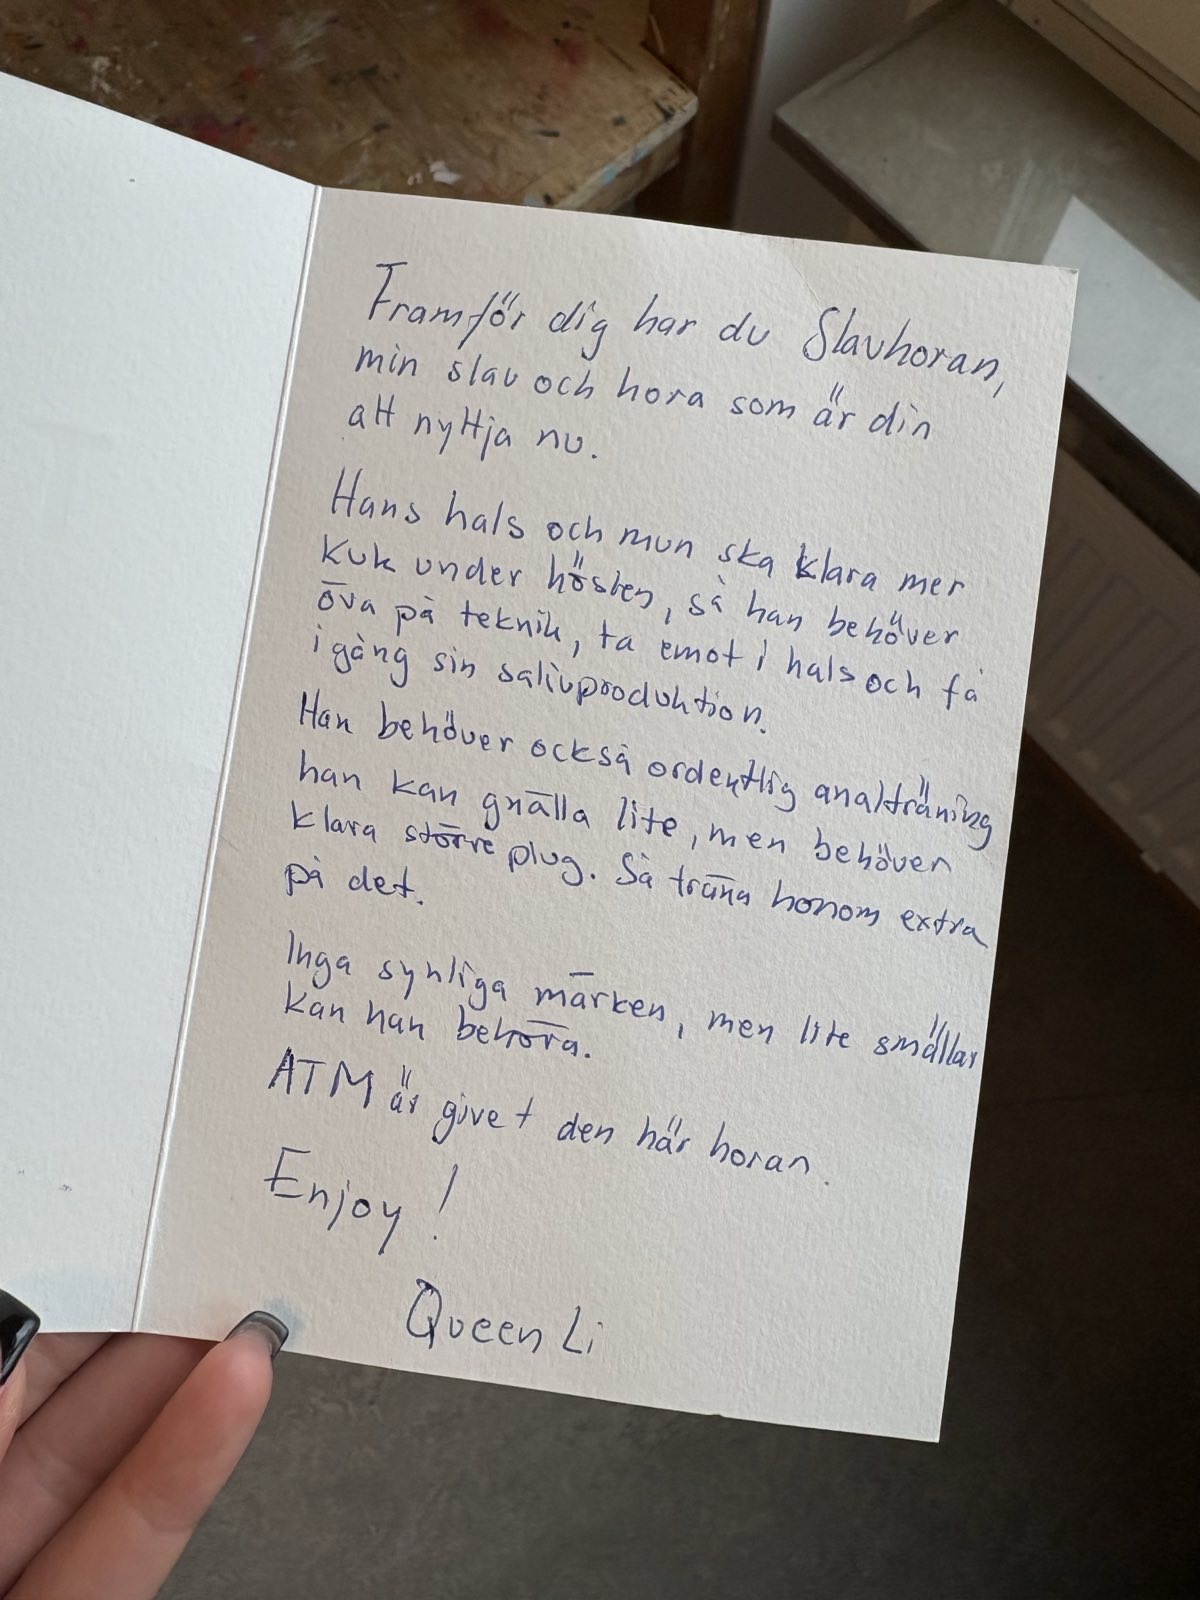 Framför dig har du Slavhoran,
min slav och hora som är din
att nyttja nu.
Hans hals och mun ska klara mer
kuk under hösten, så han behöver
öva på teknik, ta emot i hals och få
igång sin salivproduktion.
Han behöver också ordentlig analträning
han kan gnälla lite, men behöver
klara större plug. Så träna honom extra
på det.
Inga synliga märken, men lite smällar
kan han behöva.
ATM är givet den här horan.
Enjoy!
Queen Li